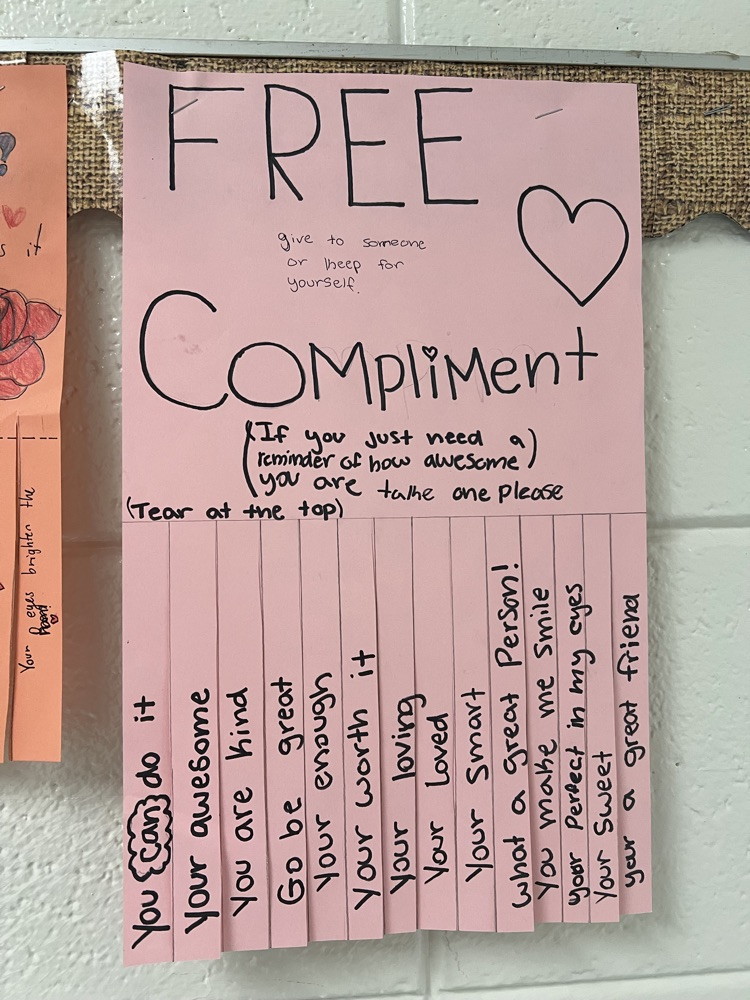 FREE
give to someone
or keep for
yourself.
Compliment
(If you just need a)
reminder of how awesome
you are take one please
(Tear at the top)
You can do it
Your awesome
You are kind
Go be great
Your enough
Your worth it
Your loving
Your Loved
Your Smart
What a great Person!
You make me smile
your perfect in my eyes
Your Sweet
your a great friend
?
s it
Your eyes brighten the